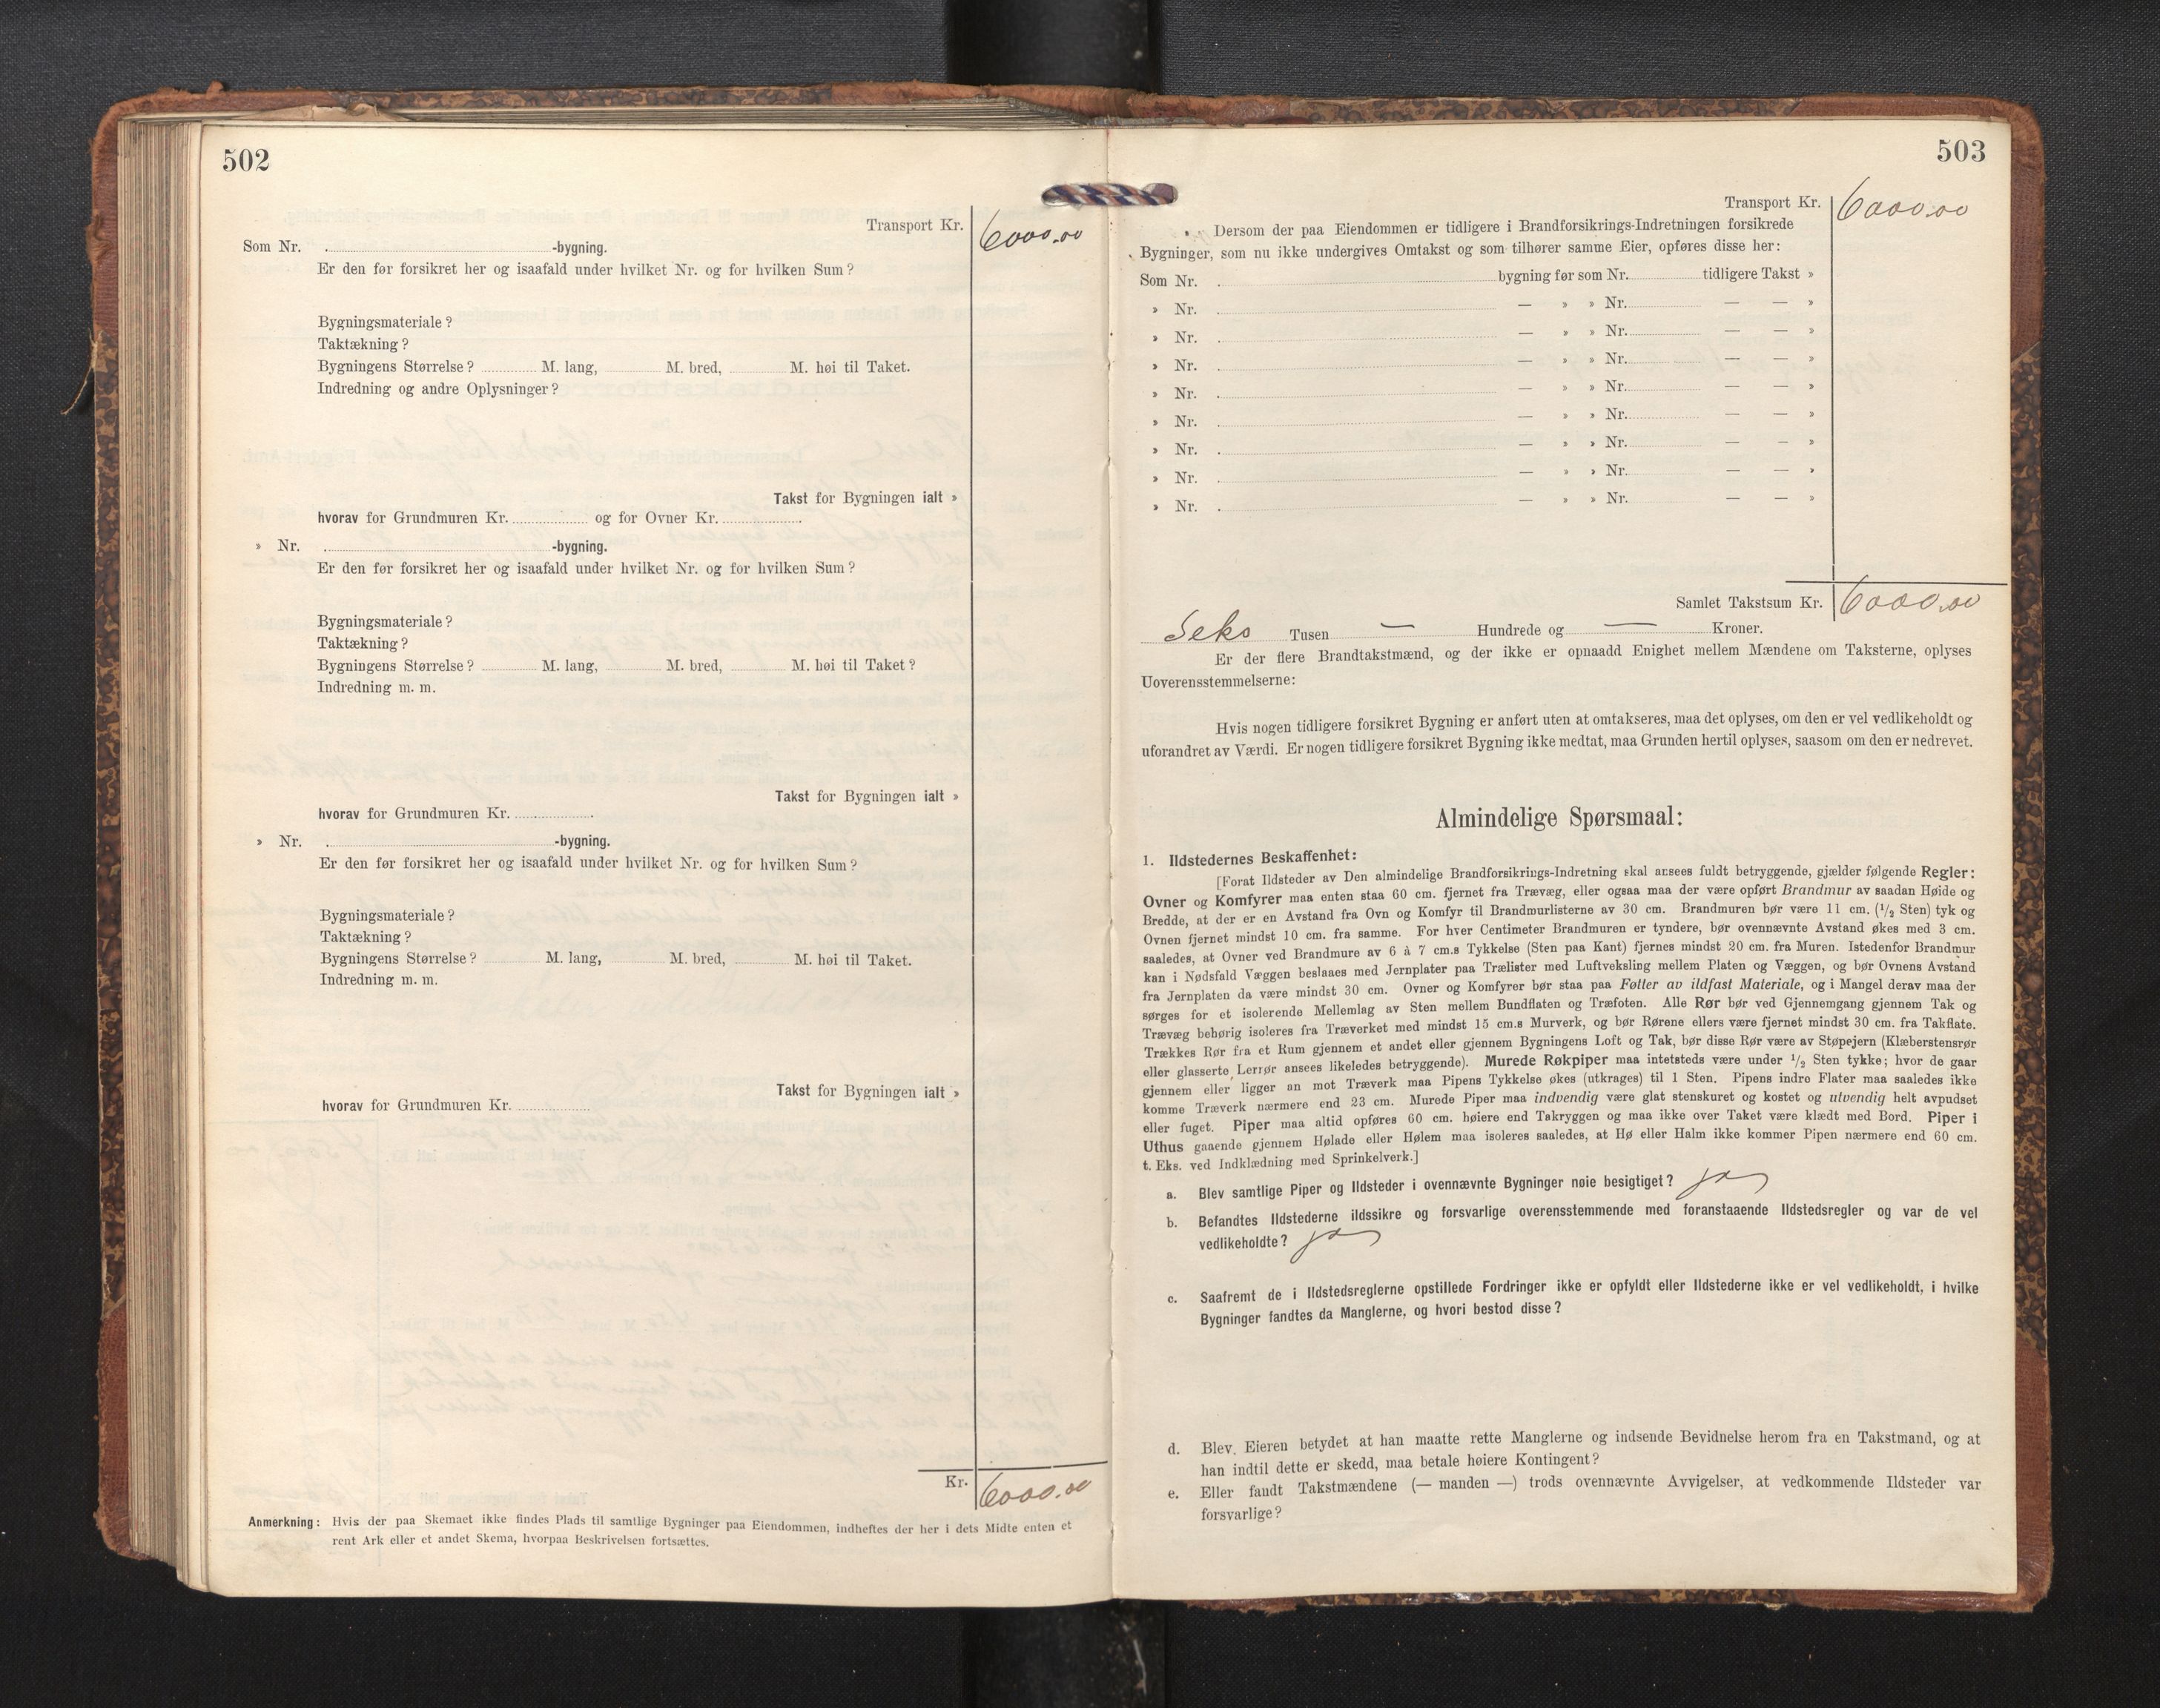 502
Transport Kr. 6000.00
Som Nr. -bygning.
Er den før forsikret her og isaafald under hvilket Nr. og for hvilken Sum?
Bygningsmateriale?
Taktækning?
Bygningens Størrelse? M. lang, M. bred, M. høi til Taket.
Indredning og andre Oplysninger?
Takst for Bygningen ialt »
hvorav for Grundmuren Kr. og for Ovner Kr.
» Nr. -bygning.
Er den før forsikret her og isaafald under hvilket Nr. og for hvilken Sum?
Bygningsmateriale?
Taktækning?
Bygningens Størrelse? M. lang, M. bred, M. høi til Taket?
Indredning m. m.
Takst for Bygningen ialt »
hvorav for Grundmuren Kr.
» Nr. -bygning.
Er den før forsikret her og isaafald under hvilket Nr. og for hvilken Sum?
Bygningsmateriale?
Taktækning?
Bygningens Størrelse? M. lang, M. bred, M. høi til Taket.
Indredning m. m.
Takst for Bygningen ialt »
hvorav for Grundmuren Kr.
Kr. 6000.00
Anmerkning: Hvis der paa Skemaet ikke findes Plads til samtlige Bygninger paa Eiendommen, indheftes der her i dets Midte enten et
rent Ark eller et andet Skema, hvorpaa Beskrivelsen fortsættes.
503
Transport Kr. 6000.00
Dersom der paa Eiendommen er tidligere i Brandforsikrings-Indretningen forsikrede
Bygninger, som nu ikke undergives Omtakst og som tilhører samme Eier, opføres disse her:
Som Nr. bygning før som Nr. tidligere Takst »
» Nr. — » » Nr. — — »
» Nr. — » » Nr. — — »
» Nr. — » » Nr. — — »
» Nr. — » » Nr. — — »
» Nr. — » » Nr. — — »
» Nr. — » » Nr. — — »
» Nr. — » » Nr. — — »
» Nr. — » » Nr. — — »
Samlet Takstsum Kr. 6000.00
Seks Tusen — Hundrede og — Kroner.
Er der flere Brandtakstmænd, og der ikke er opnaadd Enighet mellem Mændene om Taksterne, oplyses
Uoverensstemmelserne:
Hvis nogen tidligere forsikret Bygning er anført uten at omtakseres, maa det oplyses, om den er vel vedlikeholdt og
uforandret av Værdi. Er nogen tidligere forsikret Bygning ikke medtat, maa Grunden hertil oplyses, saasom om den er nedrevet.
Almindelige Spørsmaal:
1. Ildstedernes Beskaffenhet:
[Forat Ildsteder av Den almindelige Brandforsikrings-Indretning skal ansees fuldt betryggende, gjælder følgende Regler:
Ovner og Komfyrer maa enten staa 60 cm. fjernet fra Trævæg, eller ogsaa maa der være opført Brandmur av saadan Høide og
Bredde, at der er en Avstand fra Ovn og Komfyr til Brandmurlisterne av 30 cm. Brandmuren bør være 11 cm. (1/2 Sten) tyk og
Ovnen fjernet mindst 10 cm. fra samme. For hver Centimeter Brandmuren er tyndere, bør ovennævnte Avstand økes med 3 cm.
saaledes, at Ovner ved Brandmure av 6 à 7 cm.s Tykkelse (Sten paa Kant) fjernes mindst 20 cm. fra Muren. Istedenfor Brandmur
kan i Nødsfald Væggen beslaaes med Jernplater paa Trælister med Luftveksling mellem Platen og Væggen, og bør Ovnens Avstand
fra Jernplaten da være mindst 30 cm. Ovner og Komfyrer bør staa paa Føtter av ildfast Materiale, og i Mangel derav maa der
sørges for et isolerende Mellemlag av Sten mellem Bundflaten og Træfoten. Alle Rør bør ved Gjennemgang gjennem Tak og
Trævæg behørig isoleres fra Træverket med mindst 15 cm.s Murverk, og bør Rørene ellers være fjernet mindst 30 cm. fra Takflate.
Trækkes Rør fra et Rum gjennem et andet eller gjennem Bygningens Loft og Tak, bør disse Rør være av Støpejern (Klæberstensrør
eller glasserte Lerrør ansees likeledes betryggende). Murede Røkpiper maa intetsteds være under 1/2 Sten tykke; hvor de gaar
gjennem eller ligger an mot Træverk maa Pipens Tykkelse økes (utkrages) til 1 Sten. Pipens indre Flater maa saaledes ikke
komme Træverk nærmere end 23 cm. Murede Piper maa indvendig være glat stenskuret og kostet og utvendig helt avpudset
eller fuget. Piper maa altid opføres 60 cm. høiere end Takryggen og maa ikke over Taket være klædt med Bord. Piper i
Uthus gaaende gjennem Hølade eller Hølem maa isoleres saaledes, at Hø eller Halm ikke kommer Pipen nærmere end 60 cm.
t. Eks. ved Indklædning med Sprinkelverk.]
a. Blev samtlige Piper og Ildsteder i ovennævnte Bygninger nøie besigtiget? ja
b. Befandtes Ildstederne ildssikre og forsvarlige overensstemmende med foranstaaende Ildstedsregler og var de vel
vedlikeholdte? ja
c. Saafremt de i Ildstedsreglerne opstillede Fordringer ikke er opfyldt eller Ildstederne ikke er vel vedlikeholdt, i hvilke
Bygninger fandtes da Manglerne, og hvori bestod disse?
d. Blev Eieren betydet at han maatte rette Manglerne og indsende Bevidnelse herom fra en Takstmand, og at
han indtil dette er skedd, maa betale høiere Kontingent?
e. Eller fandt Takstmændene (— manden —) trods ovennævnte Avvigelser, at vedkommende Ildsteder var
forsvarlige?